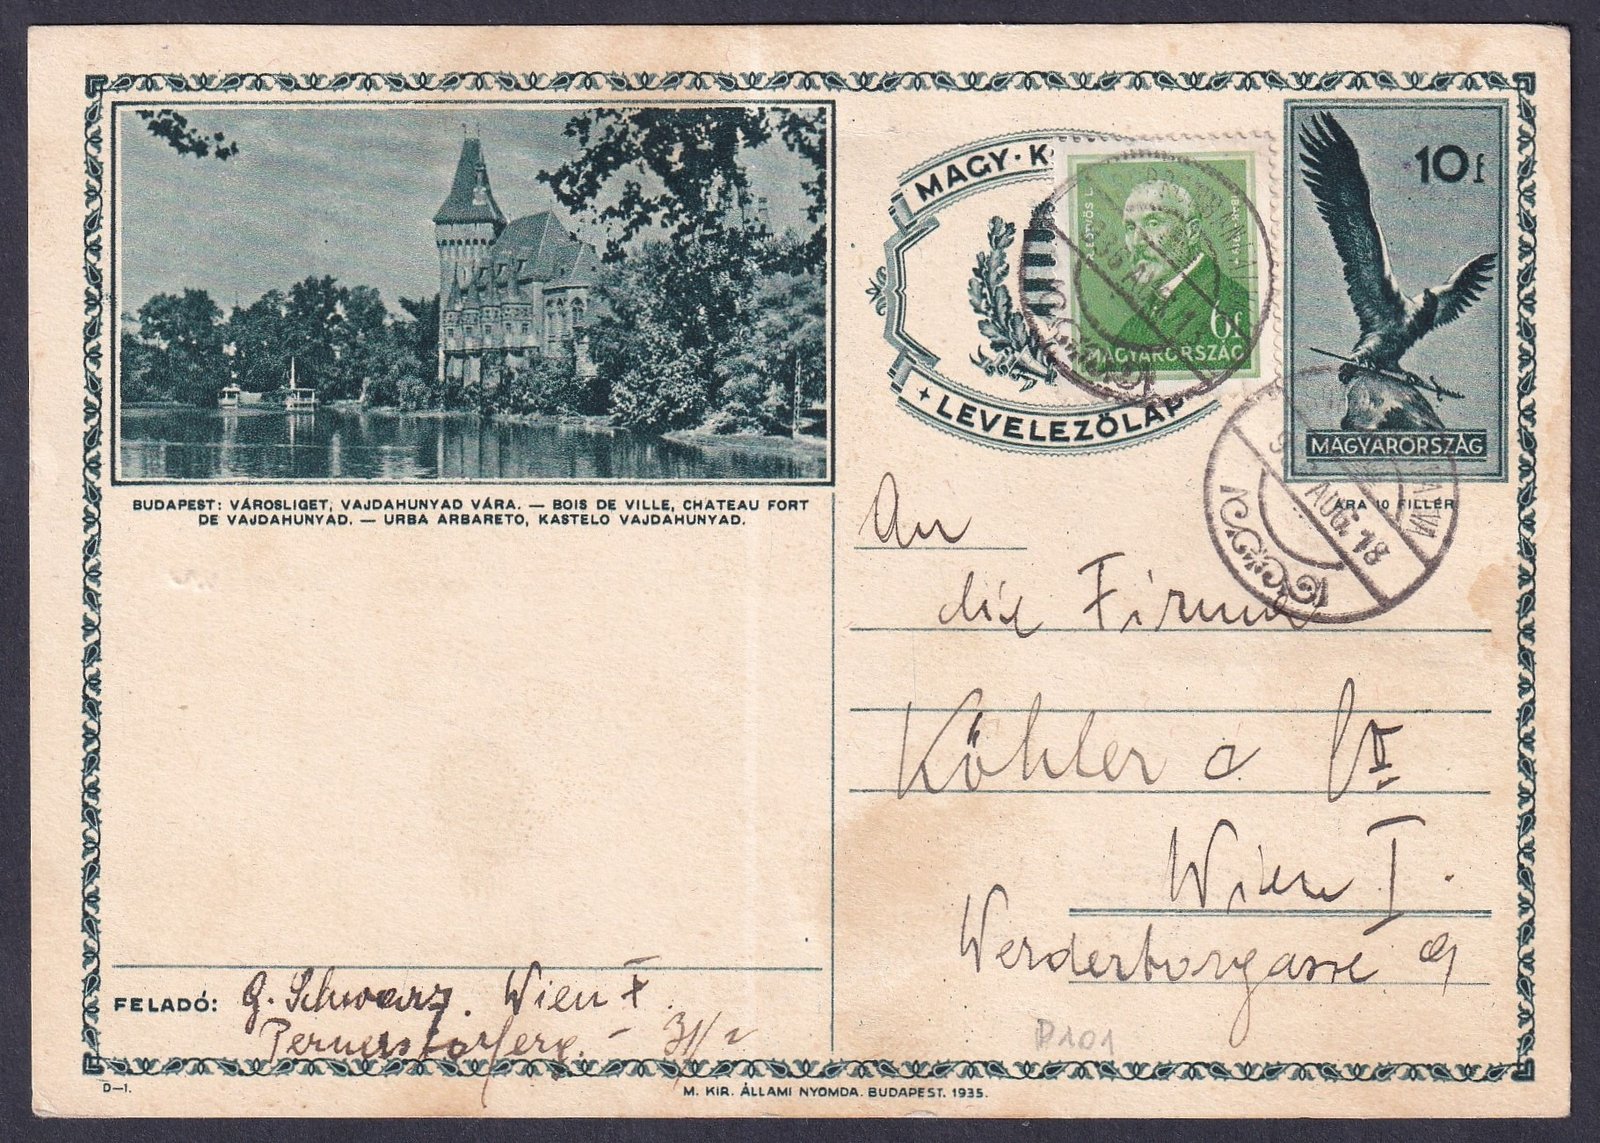 MAGY. K
LEVELEZŐLAP
6f
MAGYARORSZÁG
10f
MAGYARORSZÁG
ÁRA 10 FILLÉR
AUG. 18
BUDAPEST: VÁROSLIGET, VAJDAHUNYAD VÁRA. — BOIS DE VILLE, CHATEAU FORT
DE VAJDAHUNYAD. — URBA ARBARETO, KASTELO VAJDAHUNYAD.
An
die Firma
Köhler &
Wien I.
Werdertorgasse
FELADÓ: G. Schwarz. Wien X.
Pernerstorferg. -
P101
D—1.
M. KIR. ÁLLAMI NYOMDA. BUDAPEST. 1935.